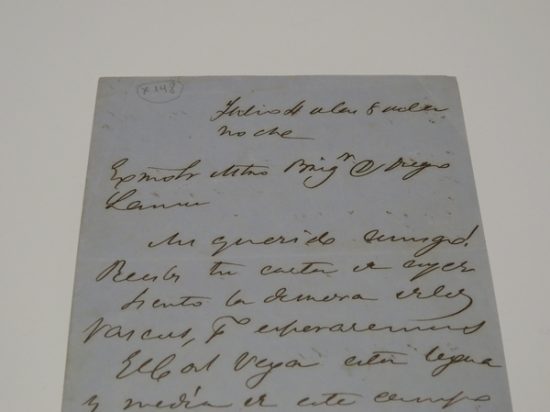 x 148
4 a las 8 de la
noche
Exmo Sr Brigr D Diego
Lamas
Mi querido amigo!
Recibi tu carta de ayer
Siento la demora de los
Vascos, po esperaremos
El Vega esta legua
y media de este campo